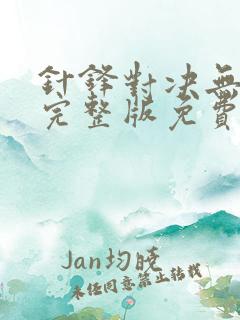 針鋒對決無
完整版免費
Jan均曉
未经同意禁止转载